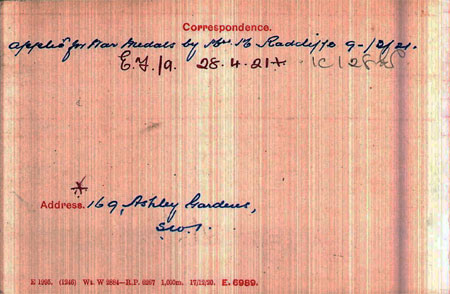 Correspondence.
Applicn for War Medals by Mr H. Radcliffe 9-12/21.
E.F./9. 28.4.21+
Address. 169, Ashley Gardens,
S.W.1.
E 1295. (1246) Wt. W 2884—R.P. 6267 1,000m. 17/12/20. E. 6989.